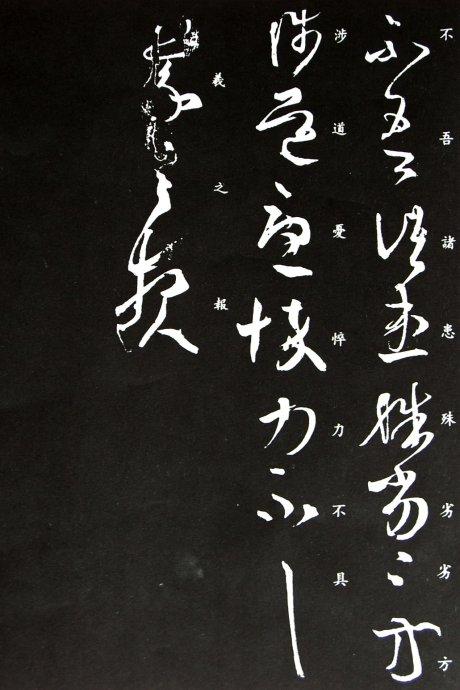 不吾諸恚殊劣劣方
涉道憂悴力不具
羲之報